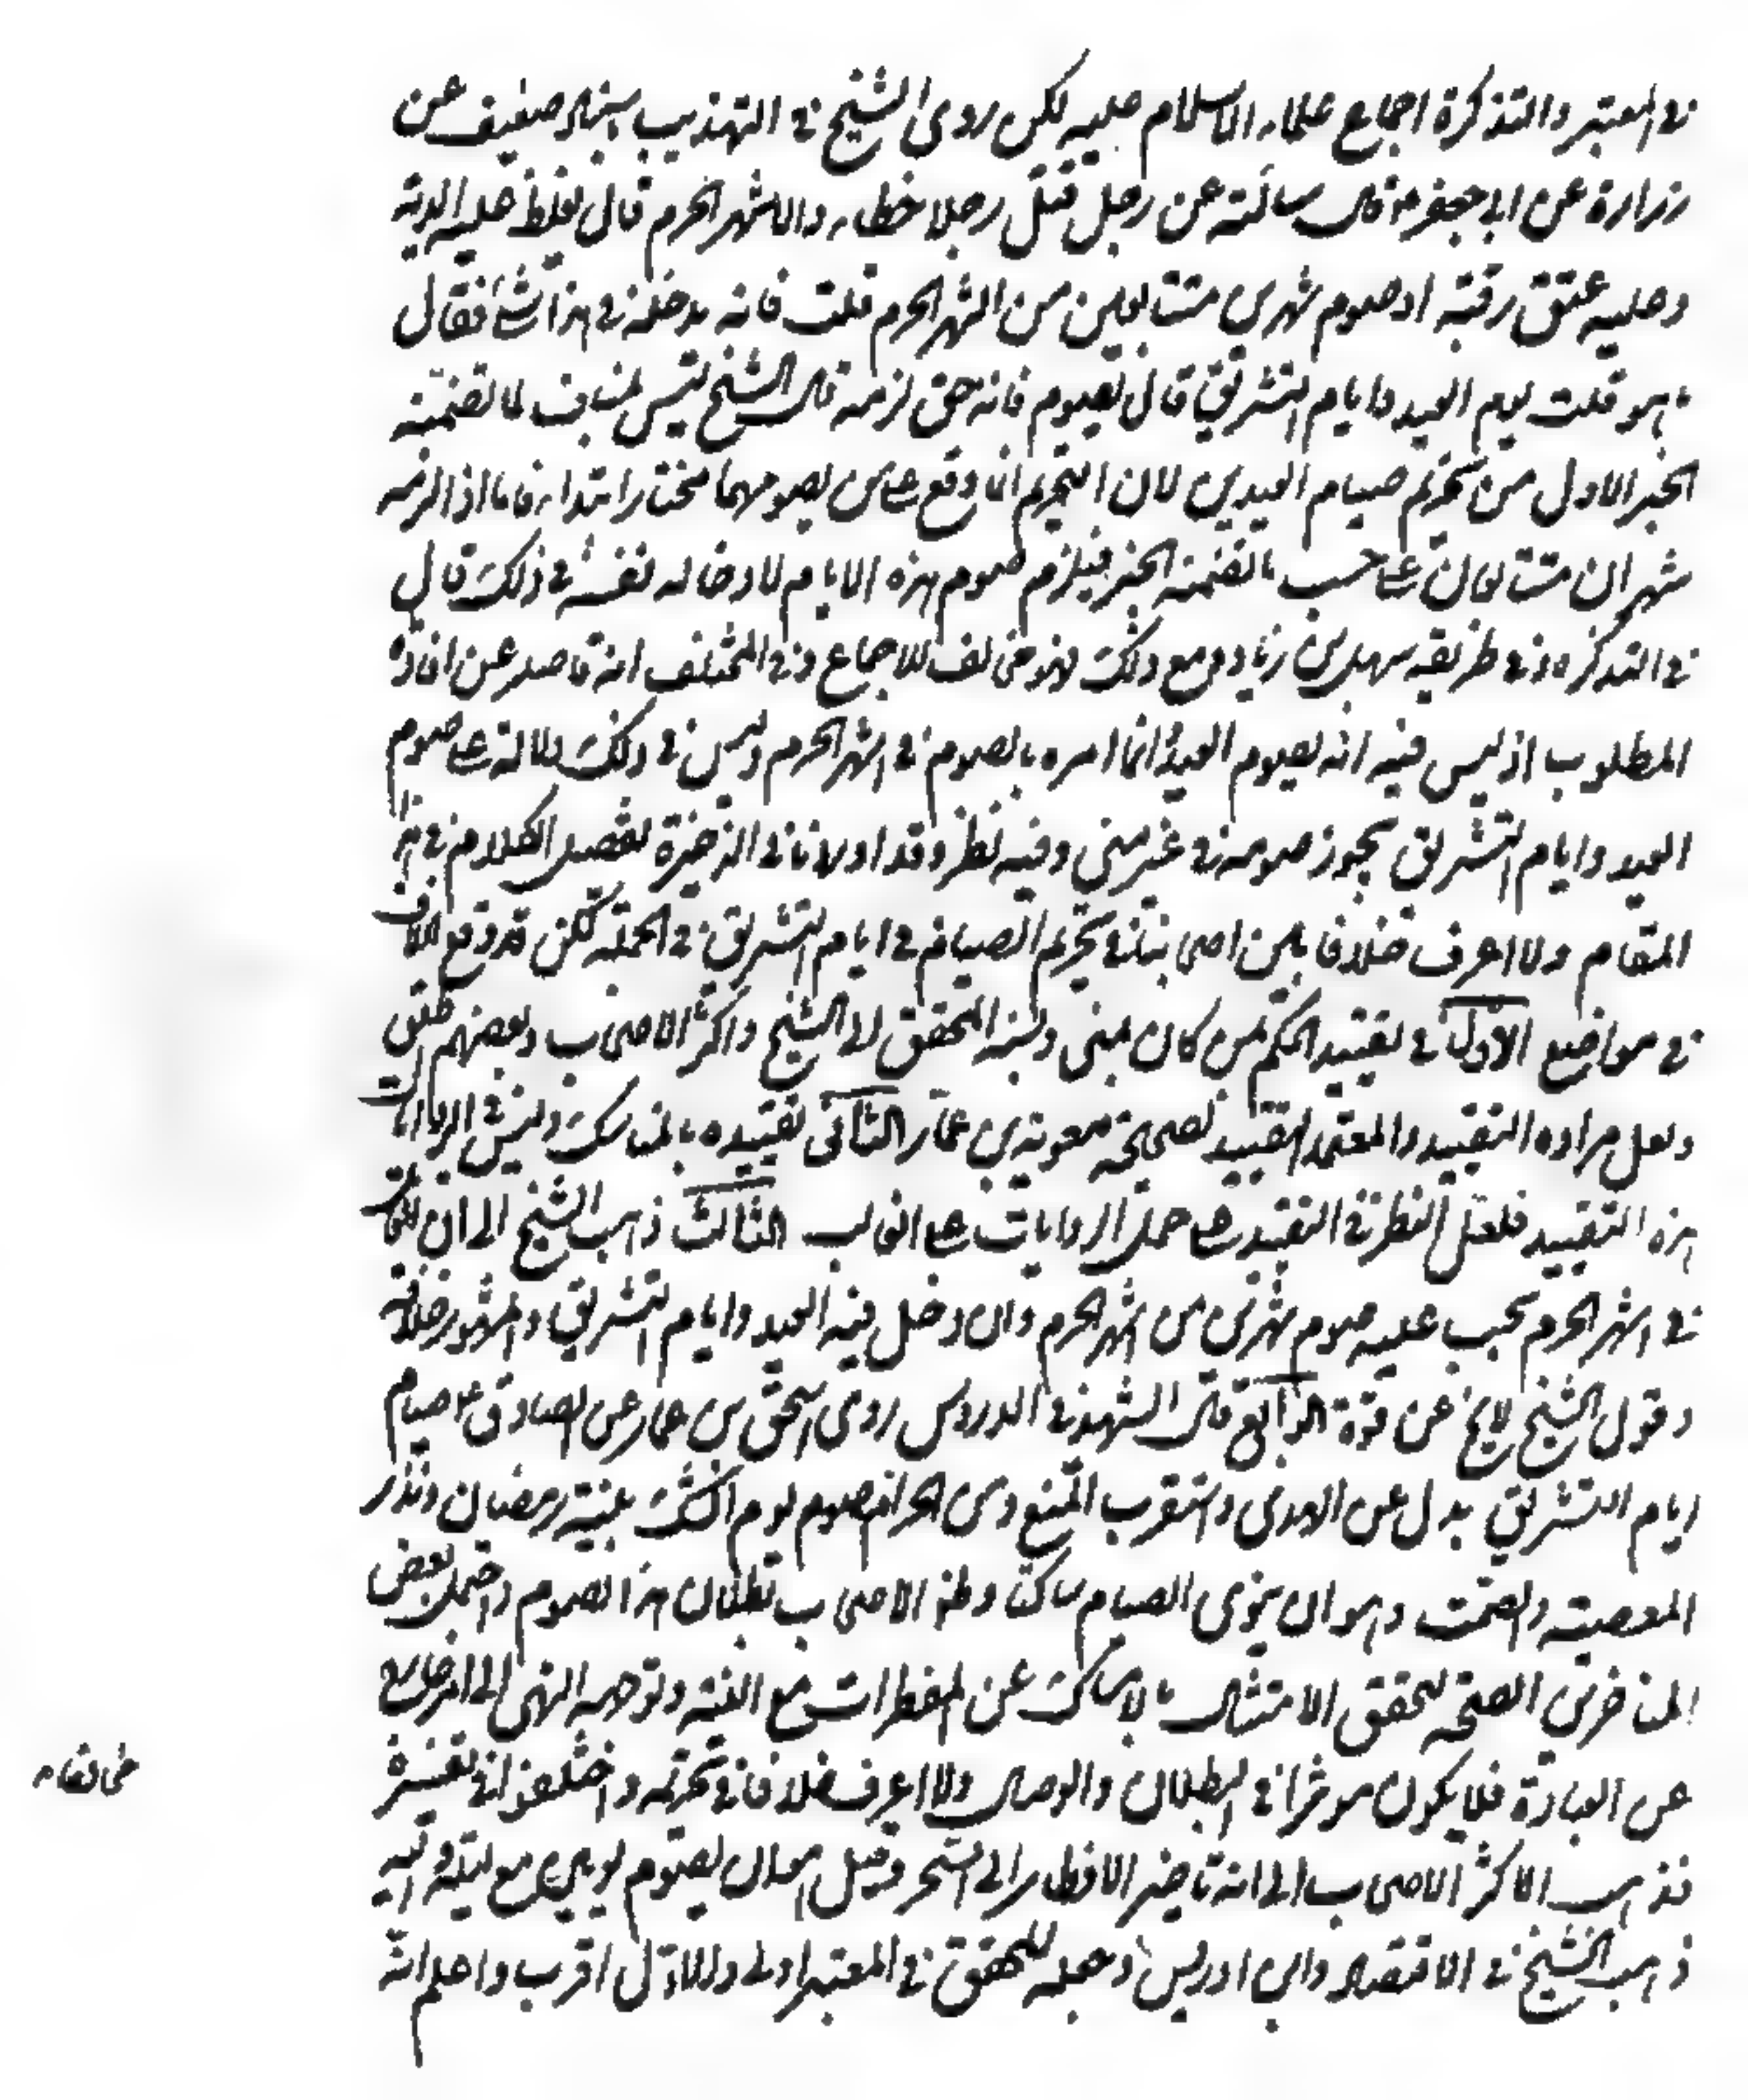 في المعتبر والتذكرة اجماع علماء الاسلام عليه لكن روى الشيخ في التهذيب باسناد ضعيف عن
زرارة عن ابي جعفر ع قال سالته عن رجل قتل رجلا خطاء والاشهر الحرم قال يغلظ عليه الدية
وعليه عتق رقبة او صوم شهرين متتابعين من اشهر الحرم قلت فانه يدخله في هذا شئ فقال
ما هو قلت يوم العيد وايام التشريق قال يصوم فانه حق لزمه قال الشيخ ليس بمناف لما تضمنته
الخبر الاول من تحريم صيام العيدين لان التحريم انما وقع على من يصومهما مختارا ابتداء فاما اذا لزمه
شهران متتابعان على حسب ما تضمنه الخبر فيلزم صوم هذه الايام لادخاله نفسه في ذلك قال
في التذكرة وفي طريقه سهل بن زياد ومع ذلك فهو مخالف للاجماع وفي المختلف انه قاصر عن افادة
المطلوب اذ ليس فيه انه يصوم العيد انما امره بالصوم في اشهر الحرم وليس في ذلك دلالة على صوم
العيد وايام التشريق يجوز صومه في غير منى وفيه نظر وقد اوردنا في الذخيرة تفصيل الكلام في هذا
المقام ولا اعرف خلافا بين اصحابنا في تحريم الصيام في ايام التشريق في الجملة لكن قد وقع الخلاف
في مواضع الاول في تقييد الحكم لمن كان بمنى ونسبه المحقق الى الشيخ واكثر الاصحاب وبعضهم اطلق
ولعل مراده التقييد والمعتمد التقييد لصحيحة معوية بن عمار الثاني تقييده بالناسك وليس في الروايات
هذه التقييد فلعل النظر في التقييد على حمل الروايات على الغالب الثالث ذهب الشيخ الى ان القاتل
في اشهر الحرم يجب عليه صوم شهرين من اشهر الحرم وان دخل فيه العيد وايام التشريق والمشهور خلافه
وقول الشيخ لا يخ عن قوة الرابع قال الشهيد في الدروس روى اسحق بن عمار عن الصادق ع صيام
ايام التشريق بدل عن الهدى واستقرب المنع ومن الحرام صوم يوم الشك بنية رمضان ونذر
المعصية والصمت وهو ان ينوى الصيام ساكتا وظ الاصحاب بطلان هذا الصوم واحتمل بعض
المتاخرين الصحة لتحقق الامتثال بالامساك عن المفطرات مع النية وتوجه النهى الى امر خارج
عن العبادة فلا يكون موثرا في البطلان والوصال ولا اعرف خلافا في تحريمه واختلفوا في تفسيره
فذهب الاكثر الاصحاب الى انه تاخير الافطار الى السحر وقيل هو ان يصوم يومين مع ليلة واليه
ذهب الشيخ في الاقتصاد وابن ادريس وجعله المحقق في المعتبر اولى والاول اقرب واعلم انه